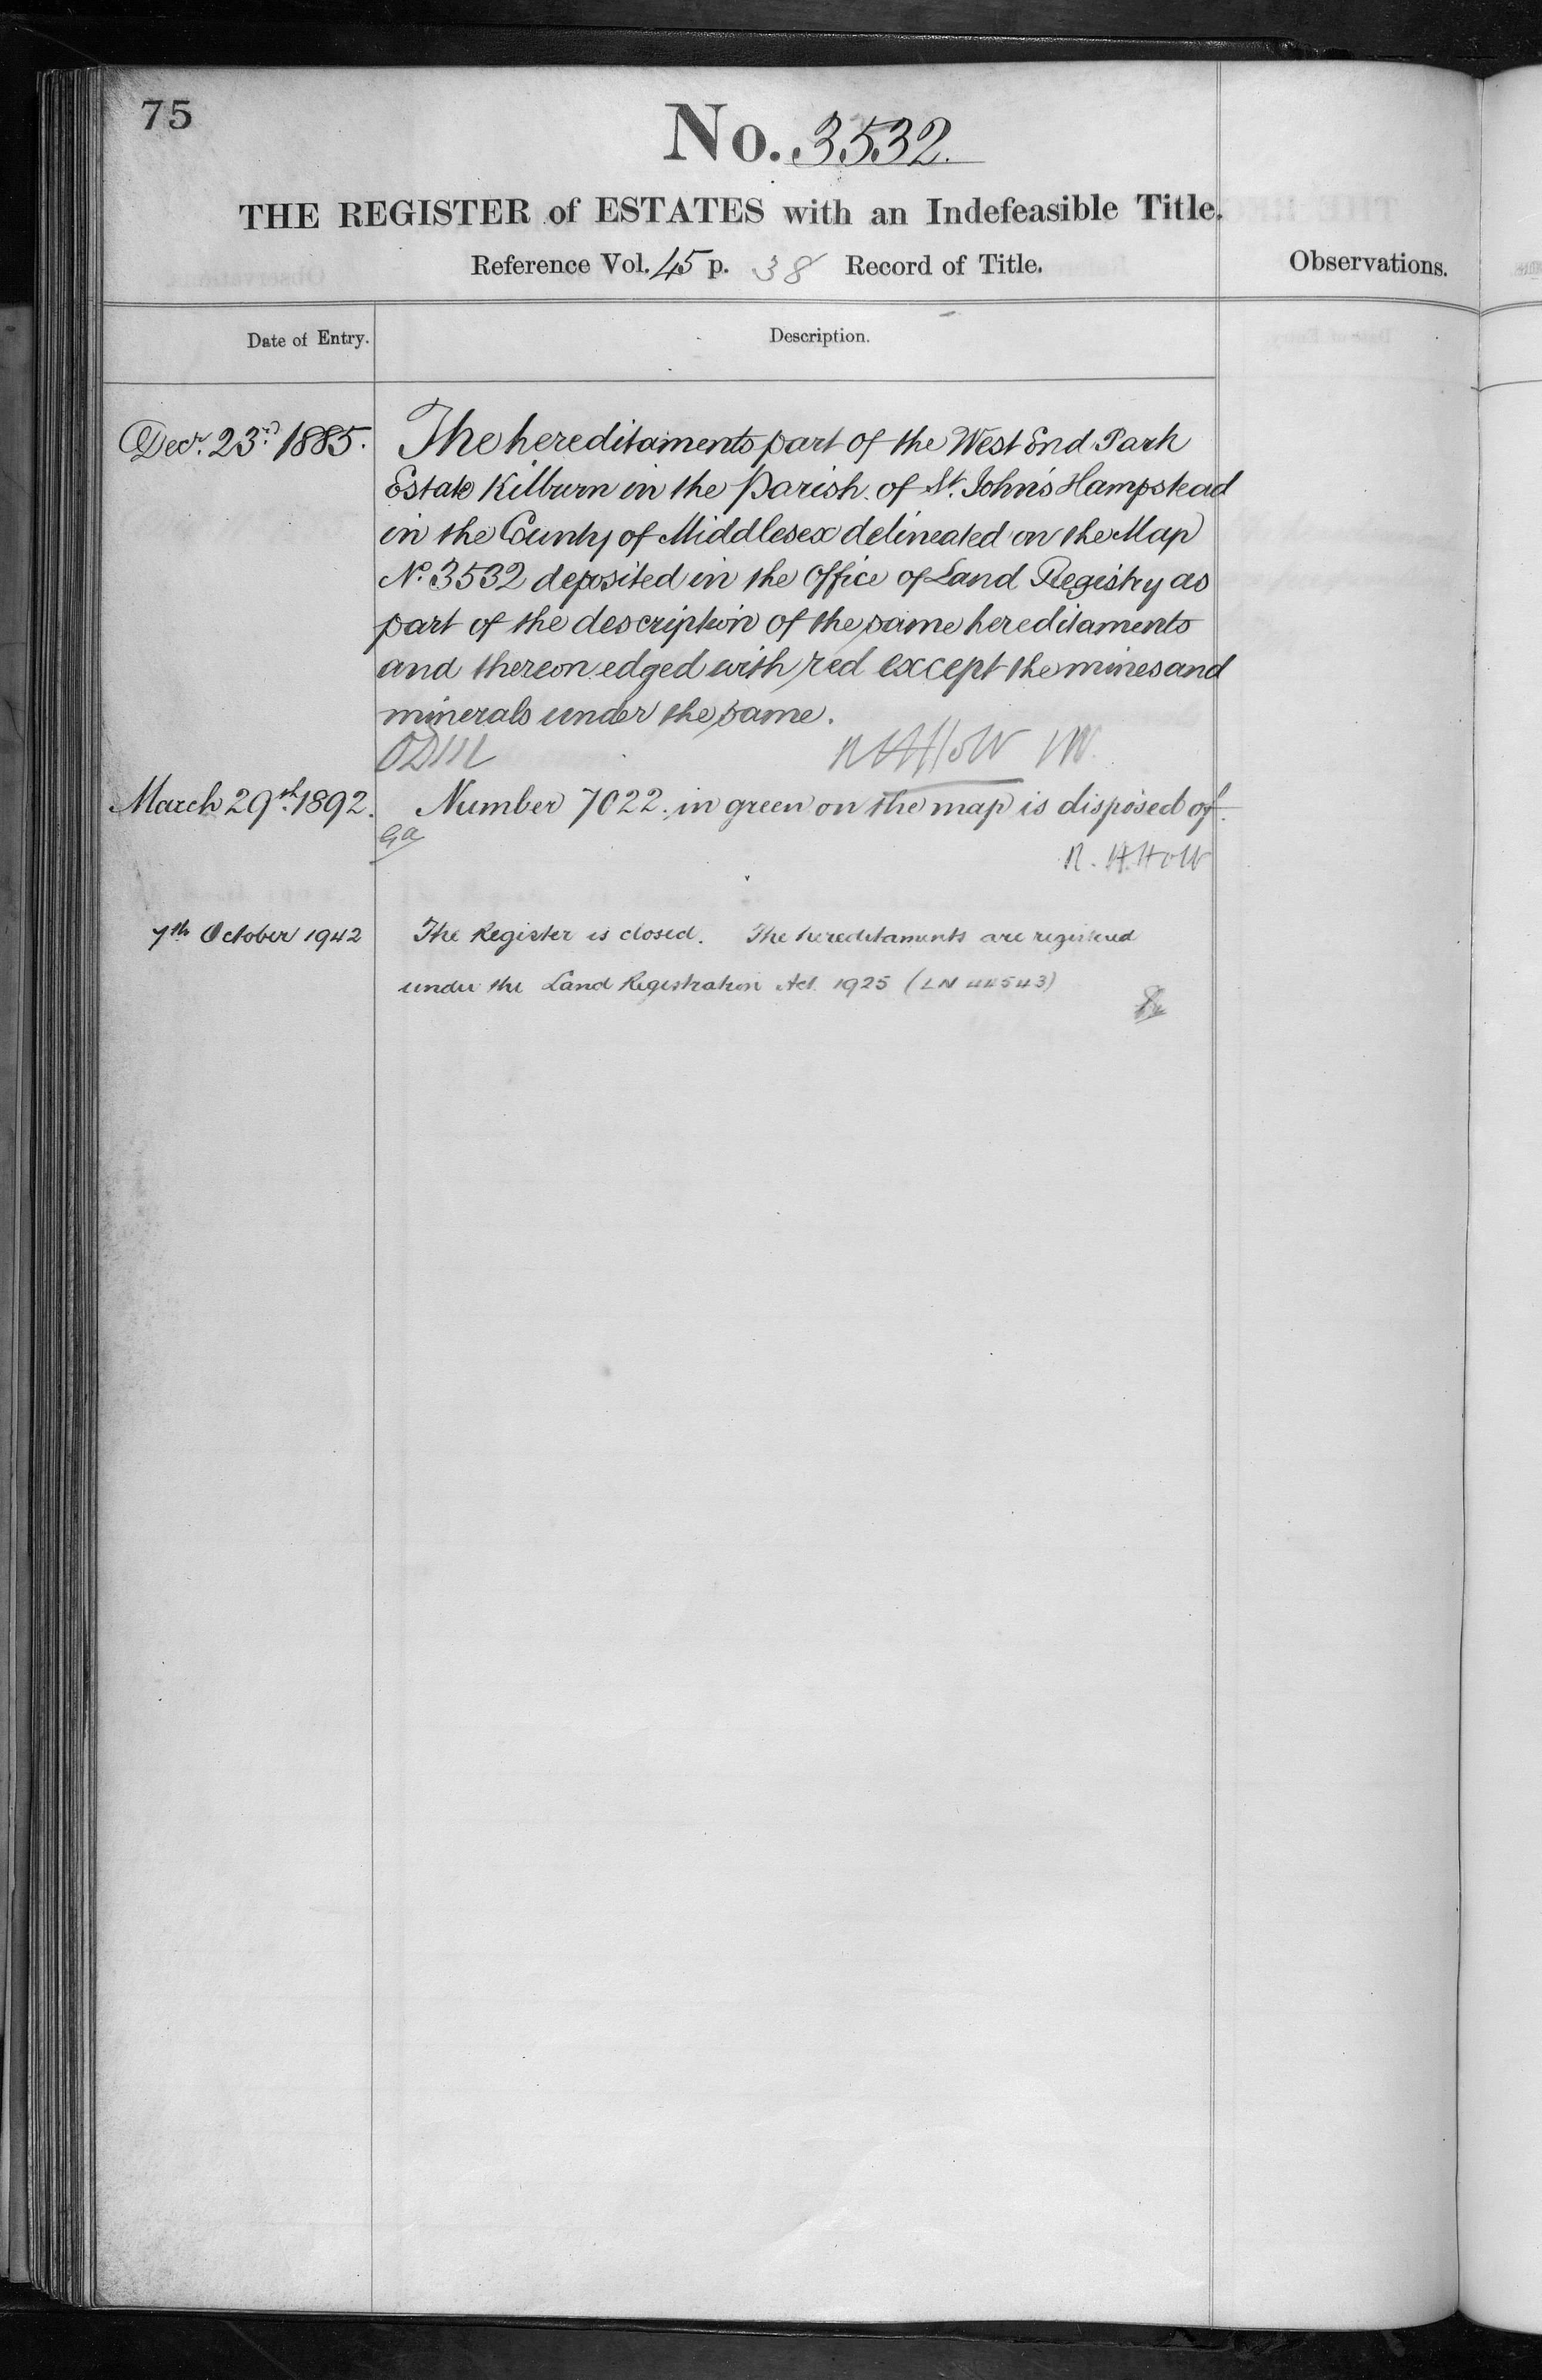 75
No. 3532.
THE REGISTER of ESTATES with an Indefeasible Title.
Reference Vol. 45 p. 38 Record of Title.
Observations.
Date of Entry.
Description.
Decr. 23rd 1885. The hereditaments part of the West End Park
Estate Kilburn in the Parish of St. John's Hampstead
in the County of Middlesex delineated on the Map
No. 3532 deposited in the Office of Land Registry as
part of the description of the same hereditaments
and thereon edged with red except the mines and
minerals under the same.
March 29th. 1892. Number 7022. in green on the map is disposed of.
R. H. Holt
7th October 1942 The Register is closed. The hereditaments are registered
under the Land Registration Act. 1925 (LN 44543)